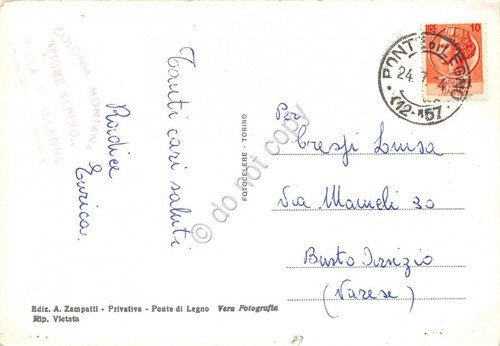 COLONIA MONTANA
VILLA D'ALLEGNO
Tanti cari saluti
Radice
Enrica.
FOTOCELERE - TORINO
do not copy
PONTE DI LEGNO
24.7
(12-157
10
Per
Crespi Luisa
Via Mameli 30
Busto Arsizio
(Varese)
Ediz. A. Zampatti - Privativa - Ponte di Legno Vera Fotografia
Rip. Vietata